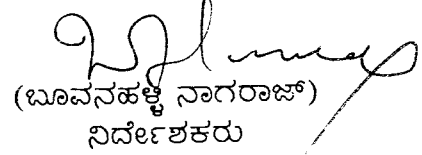 (ಬೂವನಹಳ್ಳಿ ನಾಗರಾಜ್)
ನಿರ್ದೇಶಕರು